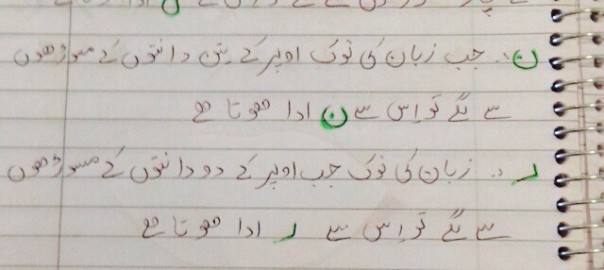 ن:۔ جب زبان کی نوک اوپر کے تین دانتوں کے مسوڑھوں
سے لگے تو اس سے ن ادا ھوتا ھے
ر :۔ زبان کی نوک جب اوپر کے دو دانتوں کے مسوڑھوں
سے لگے تو اس سے ر ادا ھوتا ھے